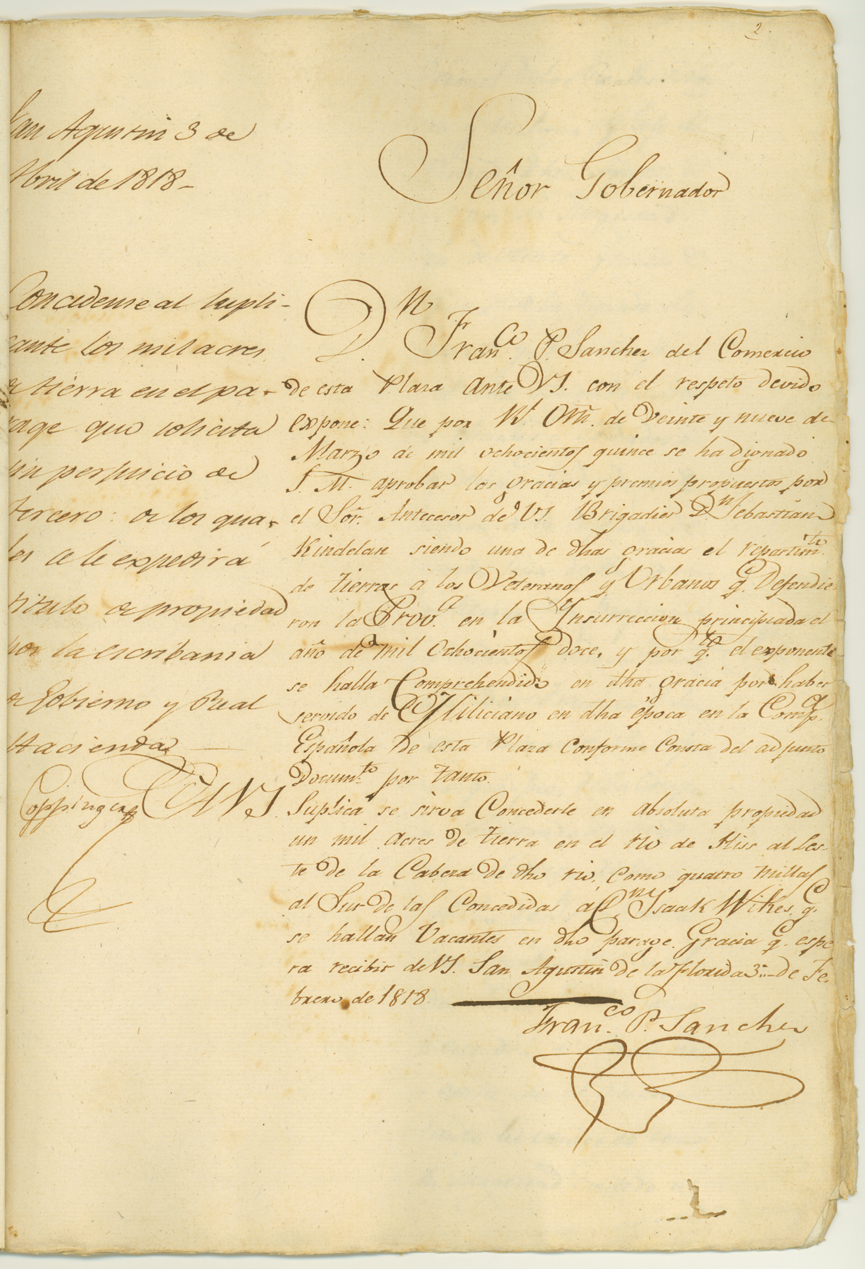 2
San Agustin 3 de
Abril de 1818-
Señor Gobernador
Concedense al supli-
cante los mil acres
de tierra en el pa-
rage que solicita
sin perjuicio de
tercero: de los qua-
les se le expedirá
titulo de propiedad
por la escribania
de Gobierno y Real
Hacienda
Coppinger
Dn Franco. P. Sanchez del Comercio
de esta Plaza Ante VS. con el respeto devido
expone: Que por Rl. Orn. de Veinte y nueve de
Marzo de mil ochocientos quince se ha dignado
S. M. aprobar las gracias y premios propuestas por
el Sor. Antecesor de VS. Brigadier Dn Sebastian
Kindelan siendo una de dhas gracias el repartimto
de tierras á los Veteranos y Urbanos q. Defendie
ron la Prova. en la Insurreccion principiada el
año de mil Ochocientos doce, y por qto. el exponente
se halla Comprehendido en dha gracia por haber
servido de Miliciano en dha época en la Compa.
Española de esta Plaza conforme Consta del adjunto
Documto. por tanto.
A VS. Suplica se sirva Concederle en absoluta propiedad
un mil acres de tierra en el rio de Hiss al Les-
te de la Cabeza de dho rio, como quatro millas
al Sur de las Concedidas á Isaak Wikes, q.
se hallan Vacantes en dho parage. Gracia q. espe
ra recibir de VS. San Agustin de la Florida 3 de Fe-
brero de 1818
Franco. P. Sanchez